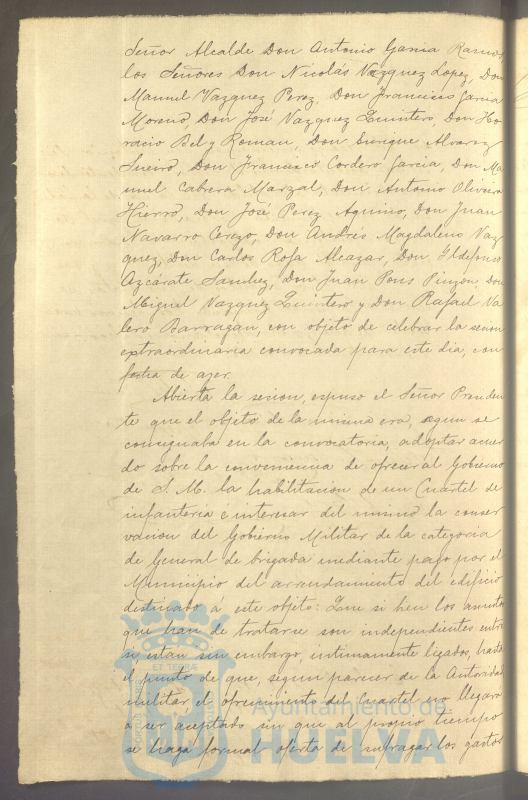 Señor Alcalde Don Antonio Garcia Ramos,
los Señores Don Nicolás Vazquez Lopez, Don
Manuel Vazquez Perez, Don Francisco Garcia
Moreno, Don José Vazquez Quintero, Don Ho-
racio Bel y Roman, Don Enrique Alvarez
Sueiro, Don Francisco Cordero Garcia, Don Ma-
nuel Cabrera Marzal, Don Antonio Oliveira
Hierro, Don José Perez Aquino, Don Juan
Navarro Cerezo, Don Andrés Magdaleno Vaz-
quez, Don Carlos Rofa Alcazar, Don Ildefonso
Azcárate Sanchez, Don Juan Pons Pinzon, Don
Miguel Vazquez Quintero y Don Rafael Va-
lero Barragan, con objeto de celebrar la sesion
extraordinaria convocada para este dia, con
fecha de ayer.
Abierta la sesion, espuso el Señor Presiden-
te que el objeto de la misma era, segun se
consignaba en la convocatoria, adoptar acuer-
do sobre la conveniencia de ofrecer al Gobierno
de S. M. la habilitacion de un Cuartel de
infanteria é interesar del mismo la conser-
vacion del Gobierno Militar de la categoria
de General de brigada mediante pago por el
Municipio del arrendamiento del edificio
destinado á este objeto: Que si bien los asuntos
que han de tratarse son independientes entre
si, estan sin embargo, intimamente ligados, hasta
el punto de que, segun parecer de la Autoridad
militar, el ofrecimiento del Cuartel no llegará
a ser aceptado sin que al propio tiempo
se haga formal oferta de sufragar los gastos
ET TERRÆ
Ayuntamiento de
HUELVA